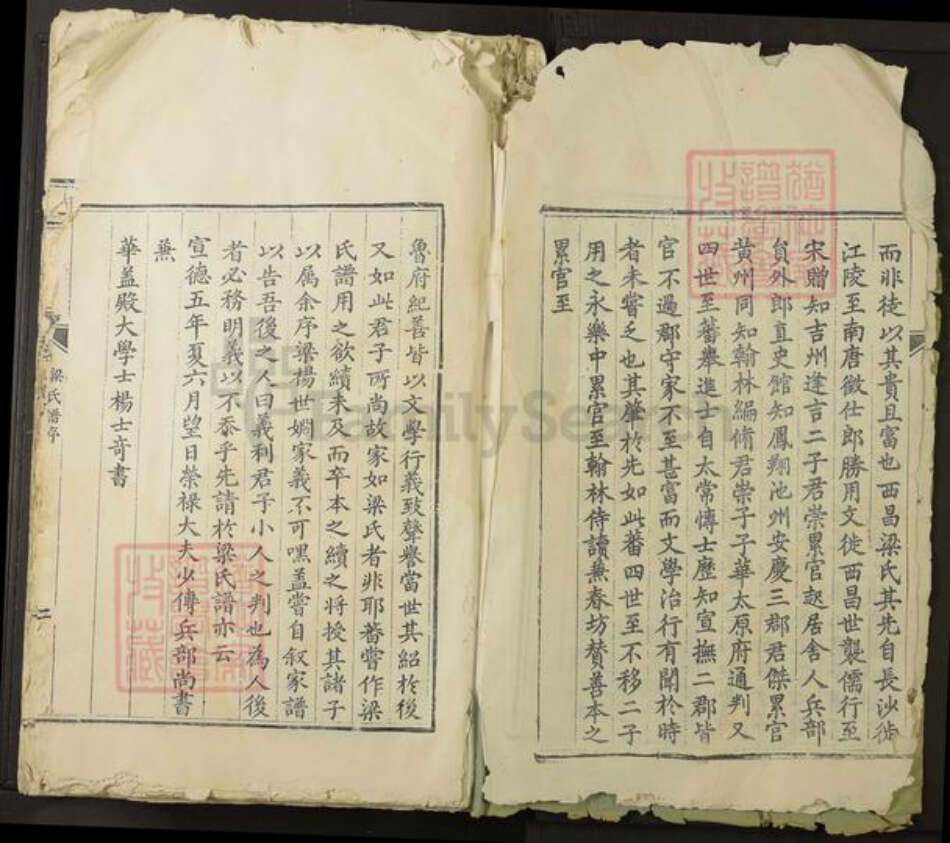 而非徒以其貴且富也西昌梁氏其先自長沙徙
江陵至南唐徵仕郎勝用文徙西昌世襲儒行至
宋贈知吉州逢吉二子君崇累官起居舍人兵部
貟外郎直史館知鳳翔池州安慶三郡君傑累官
黄州同知翰林編脩君崇子子華太原府通判又
四世至蕃舉進士自太常愽士歷知宣撫二郡皆
官不過郡守家不至甚富而文學治行有聞於時
者未嘗乏也其肇於先如此蕃四世至不移二子
用之永樂中累官至翰林侍讀蒹春坊賛善本之
累官至
魯府紀善皆以文學行義致聲譽當世其紹於後
又如此君子所尚故家如梁氏者非耶蕃嘗作梁
氏譜用之欲續未及而卒本之續之將授其諸子
以属余序梁楊世婣家義不可嘿盖嘗自叙家譜
以告吾後之人曰義利君子小人之判也為人後
者必務明義以不忝乎先請於梁氏譜亦云
宣德五年夏六月望日榮禄大夫少傅兵部尚書
蒹
華盖殿大學士楊士奇書
梁氏譜序
二
FamilySearch